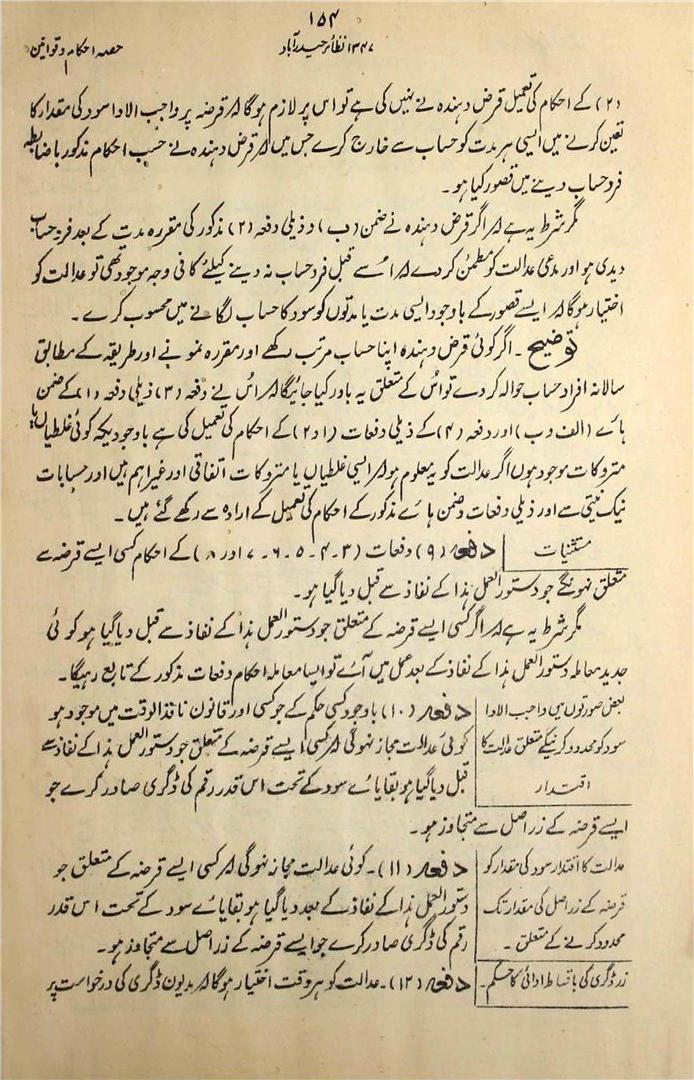 ۱۵۴
حصہ احکام و قوانین
۱۳۴۷ نظائر حیدرآباد
(۲) کے احکام کی تعمیل قرض دہندہ نے نہیں کی ہے تو اس پر لازم ہوگا کہ قرضہ پر واجب الادا سود کی مقدار کا
تعین کرنے میں ایسی ہر مدت کو حساب سے خارج کرے جس میں کہ قرض دہندہ نے حسب احکام مذکور باضابطہ
فرد حساب دینے میں قصور کیا ہو۔
مگر شرط یہ ہے کہ اگر قرض دہندہ نے ضمن (ب) و ذیلی دفعہ (۲) مذکور کی مقررہ مدت کے بعد فرد حساب
دیدی ہو اور مدعی عدالت کو مطمئن کر دے کہ اسے قبل فرد حساب نہ دینے کیلئے کافی وجہ موجود تھی تو عدالت کو
اختیار ہوگا کہ ایسے قصور کے باوجود ایسی مدت یا مدتوں کو سود کا حساب لگانے میں محسوب کرے۔
توضیح۔ اگر کوئی قرض دہندہ اپنا حساب مرتب رکھے اور مقررہ نمونے اور طریقہ کے مطابق
سالانہ افراد حساب حوالہ کر دے تو اس کے متعلق یہ باور کیا جائیگا کہ اس نے دفعہ (۳) ذیلی دفعہ (۱) کے ضمن
ہائے (الف و ب) اور دفعہ (۴) کے ذیلی دفعات (۱ و ۲) کے احکام کی تعمیل کی ہے باوجودیکہ کوئی غلطیاں یا
متروکات موجود ہوں اگر عدالت کو یہ معلوم ہو کہ ایسی غلطیاں یا متروکات اتفاقی اور غیر اہم ہیں اور حسابات
نیک نیتی سے اور ذیلی دفعات و ضمن ہائے مذکور کے احکام کی تعمیل کے ارادہ سے رکھے گئے ہیں۔
مستثنیات
دفعہ (۹) دفعات (۳۔۴۔۵۔۶۔۷ اور ۸) کے احکام کسی ایسے قرضہ سے
متعلق نہونگے جو دستور العمل ہذا کے نفاذ سے قبل دیا گیا ہو۔
مگر شرط یہ ہے کہ اگر کسی ایسے قرضہ کے متعلق جو دستور العمل ہذا کے نفاذ سے قبل دیا گیا ہو کوئی
جدید معاملہ دستور العمل ہذا کے نفاذ کے بعد عمل میں آئے تو ایسا معاملہ احکام دفعات مذکور کے تابع رہیگا۔
بعض صورتوں میں واجب الادا
سود کو محدود کرنیکے متعلق عدالت کا
اقتدار
دفعہ (۱۰) باوجود کسی حکم کے جو کسی اور قانون نافذ الوقت میں موجود ہو
کوئی عدالت مجاز نہوگی کہ کسی ایسے قرضہ کے متعلق جو دستور العمل ہذا کے نفاذ سے
قبل دیا گیا ہو بقایائے سود کے تحت اس قدر رقم کی ڈگری صادر کرے جو
ایسے قرضہ کے زر اصل سے متجاوز ہو۔
عدالت کا اقتدار سود کی مقدار کو
قرضہ کے زر اصل کی مقدار تک
محدود کرنے کے متعلق۔
دفعہ (۱۱)۔ کوئی عدالت مجاز نہوگی کہ کسی ایسے قرضہ کے متعلق جو
دستور العمل ہذا کے نفاذ کے بعد دیا گیا ہو بقایائے سود کے تحت اس قدر
رقم کی ڈگری صادر کرے جو ایسے قرضہ کے زر اصل سے متجاوز ہو۔
زر ڈگری کی باقساط ادائی کا حکم۔
دفعہ (۱۲)۔ عدالت کو ہر وقت اختیار ہوگا کہ مدیون ڈگری کی درخواست پر